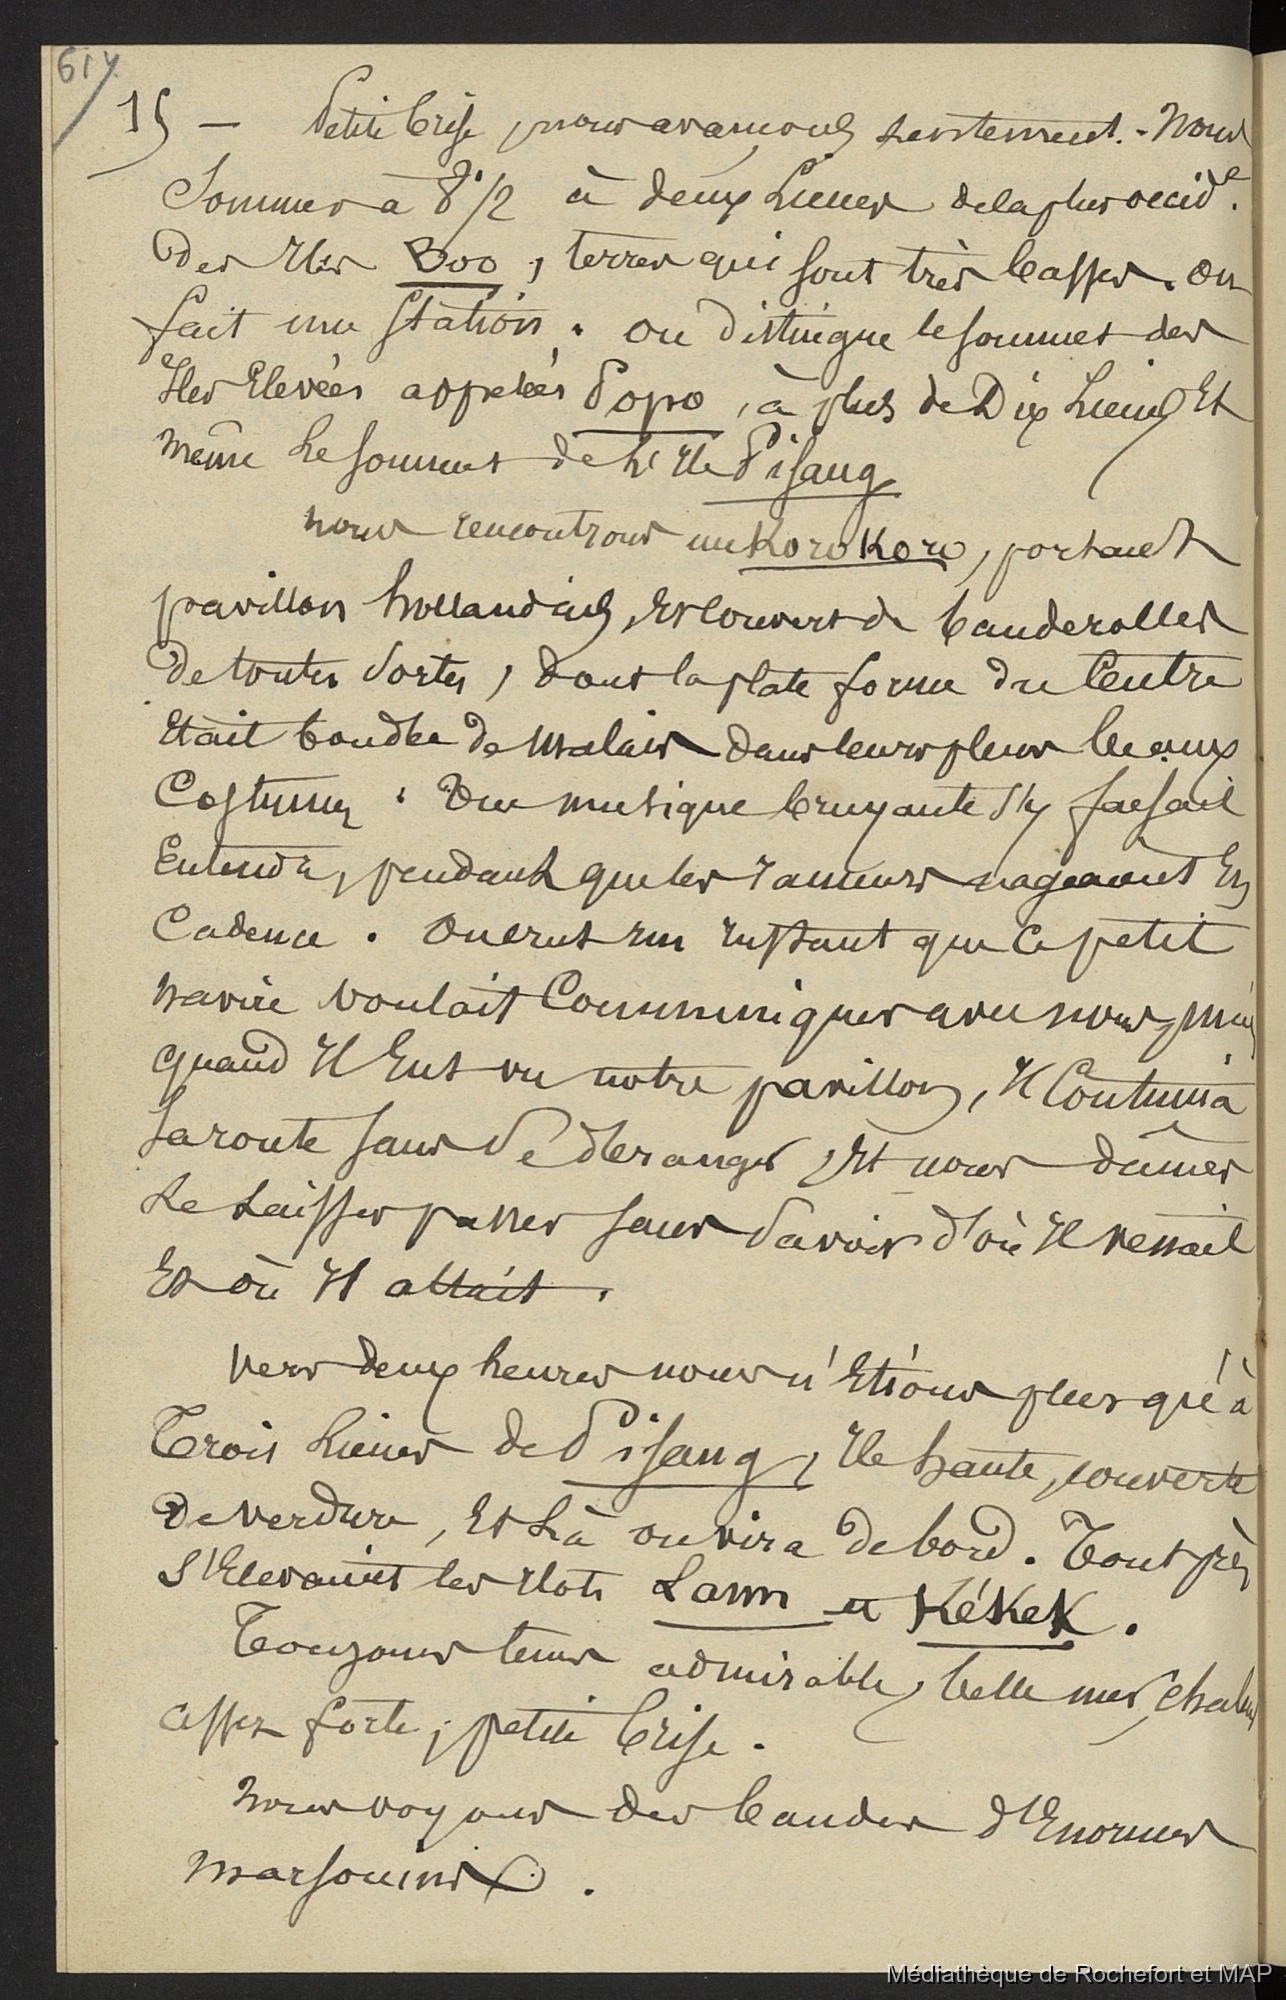 617
15 — Petite brise, nous avançons lentement. - Nous
Sommes à 8 1/2 à deux Lieues de la plus occid.e
Des Iles Boo, terres qui sont très basses. On
fait une station. On distingue le sommet des
Iles Elevées appelées Popo, à plus de Dix Lieues Et
même Le sommet de L'Ile Pisang
Nous rencontrons un KoroKoro, portant
pavillon hollandais, Et Couvert de banderolles
De toutes Sortes, dont la plate forme du Centre
Etait bondée de Malais dans leurs plus beaux
Costumes. Une musique bruyante s'y faisait
Entendre, pendant que les rameurs nageaient En
Cadence. On crut un Instant que Ce petit
navire voulait Communiquer avec nous, mais
quand Il Eut vu notre pavillon, Il Continua
Sa route sans Se déranger, Et nous dûmes
Le Laisser passer sans Savoir d'où Il venait
Et où Il allait.
Vers deux heures nous n'Etions plus qu'à
Trois Lieues de Pisang, Ile haute, couverte
De verdure, Et Là on vira de bord. Tout près
S'Elevaient les Ilots Lawn et KéKeK.
Toujours temps admirable, belle mer, chaleur
assez forte, petite brise.
Nous voyons des bandes d'Enormes
marsouins.
Médiathèque de Rochefort et MAP